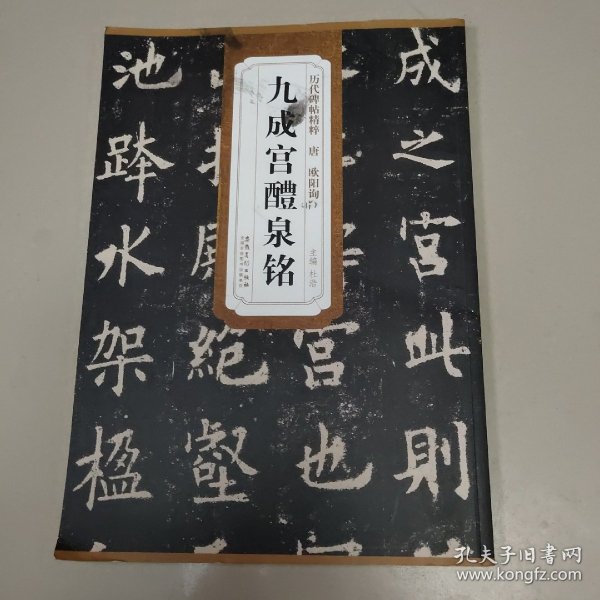 历代碑帖精粹 唐 欧阳询
九成宫醴泉铭
主编 杜浩
安徽美术出版社
成之宫此则
宫也
绝壑
池跨水架楹
孔夫子旧书网
www.kongfz.com